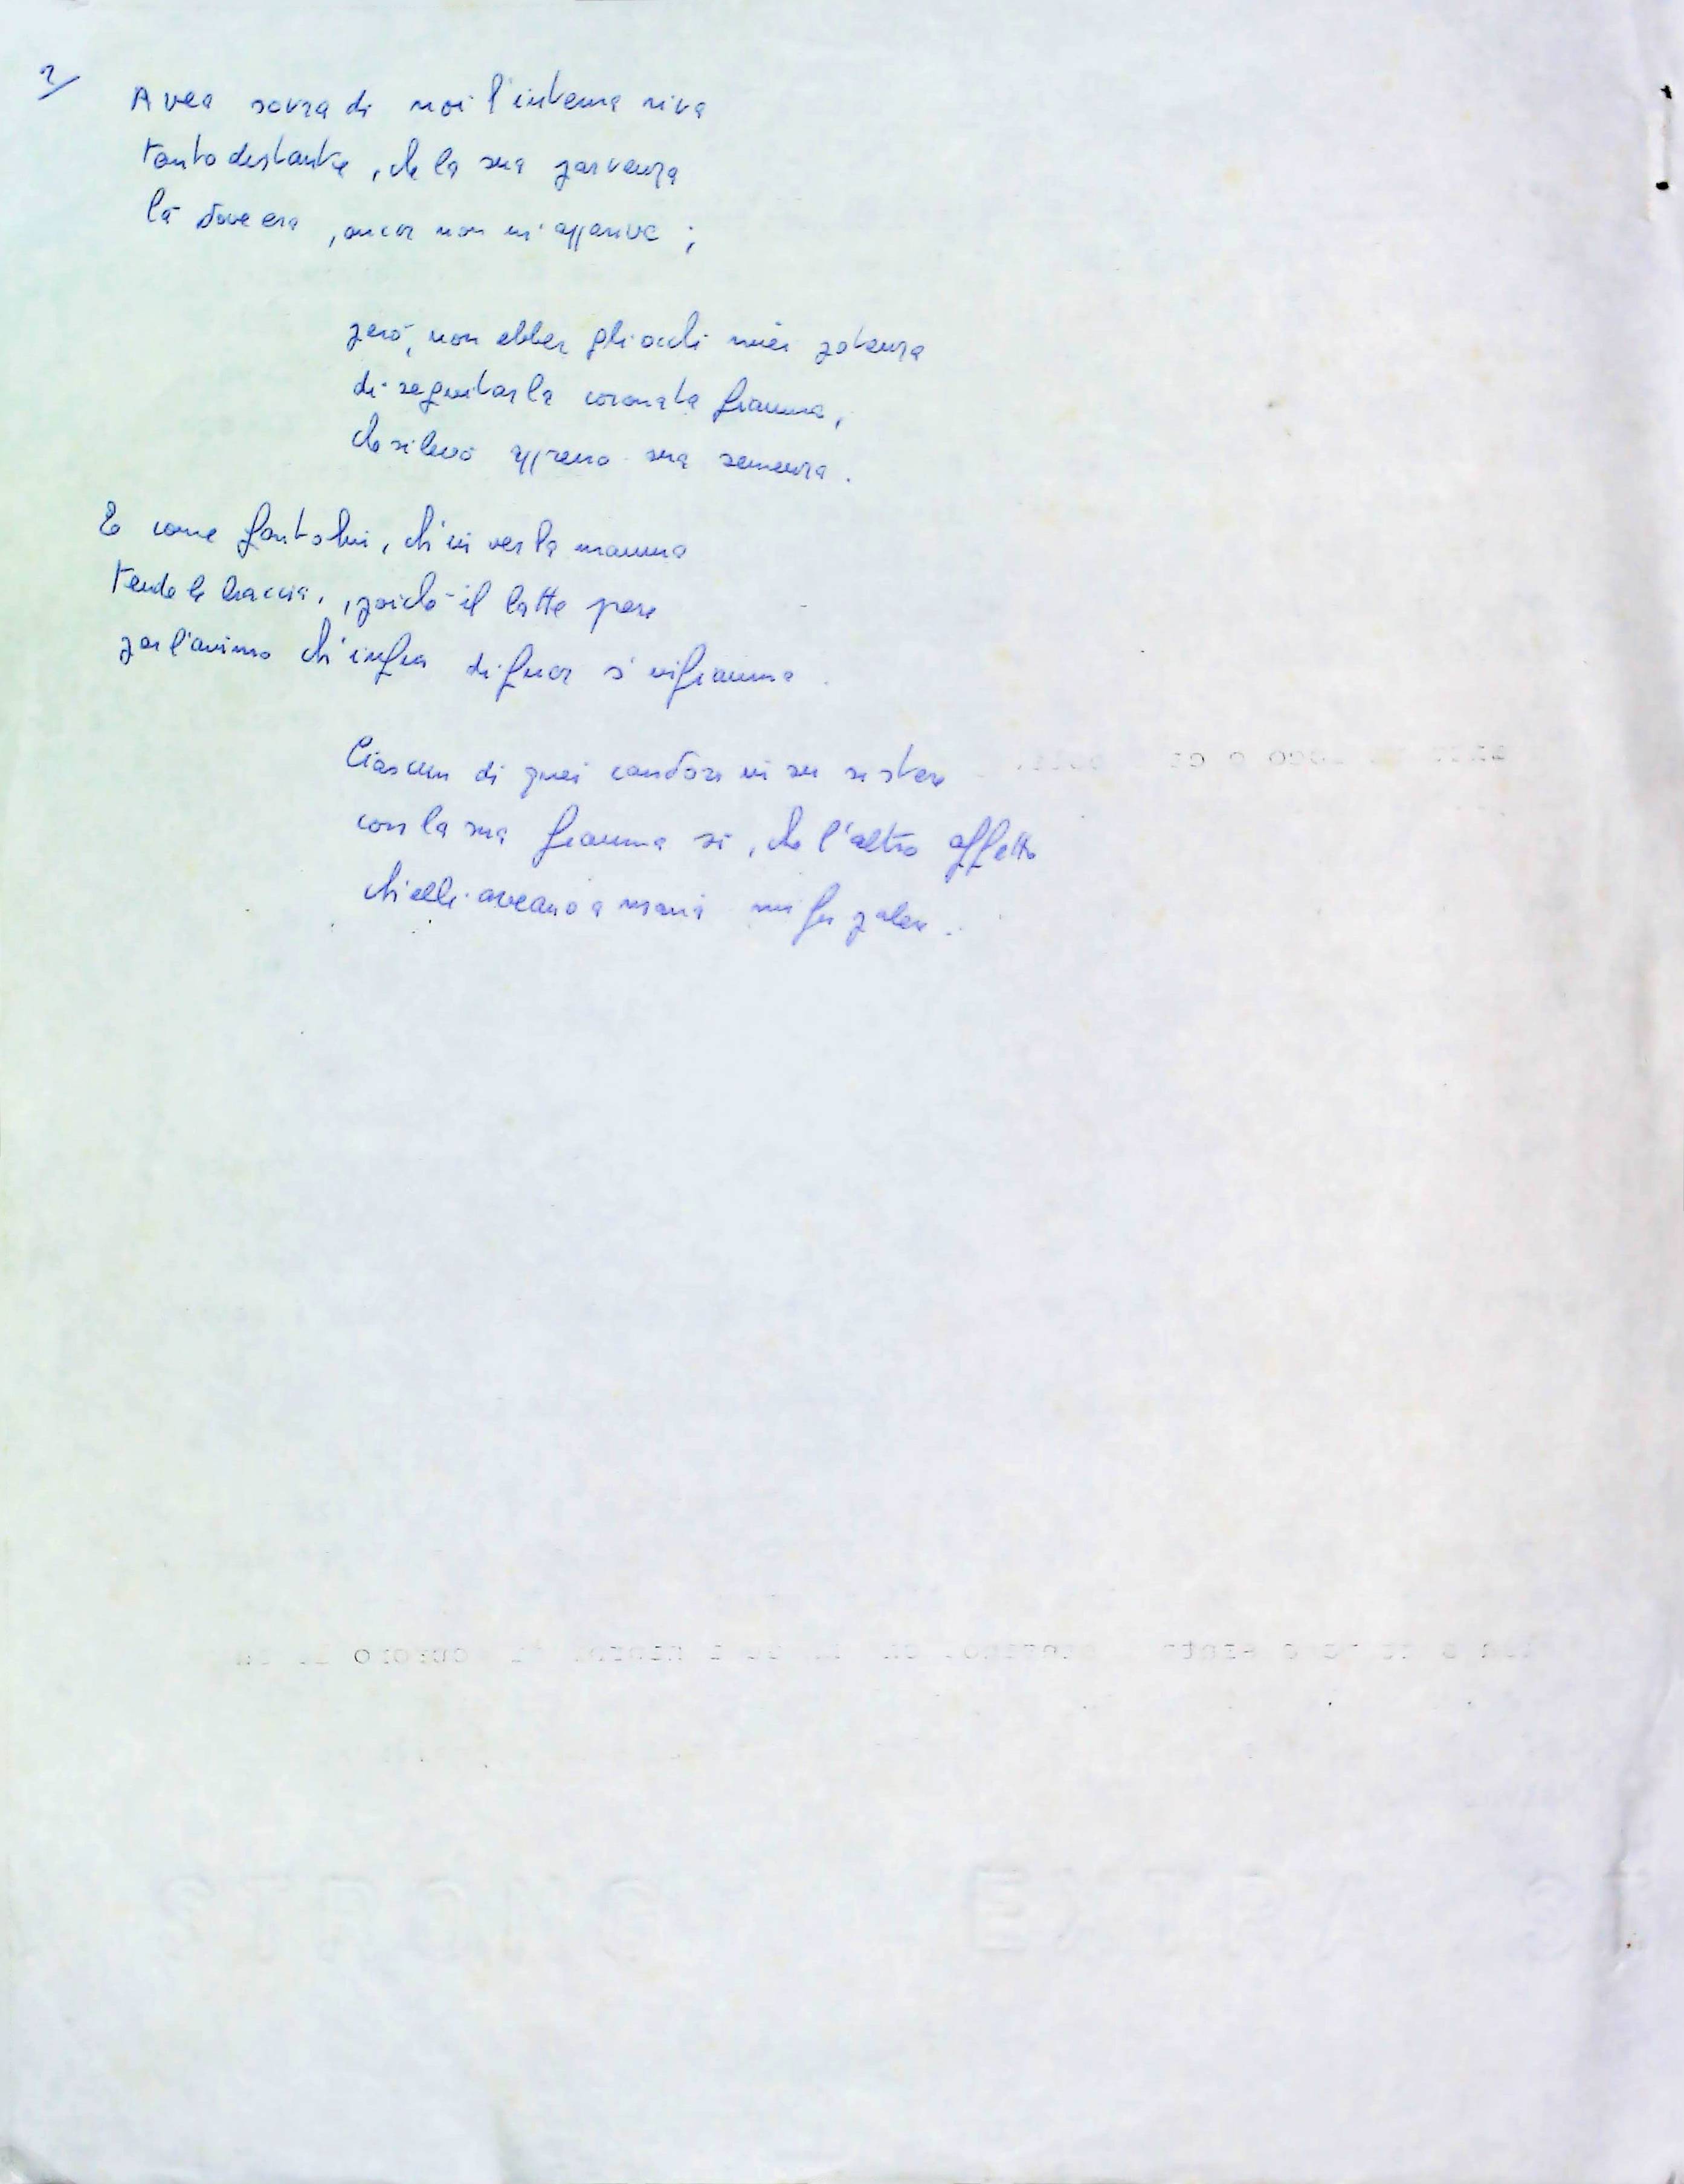 2/
Avea sovra di noi l'interna riva
tanto distante, che la sua parvenza
là dove era, ancor non m'appariva;
però, non ebber gli occhi miei potenza
di seguitar la coronata fiamma,
che si levò appresso sua semenza.
E come fantolin, ch'in ver la mamma
tende le braccia, poiché il latte prese
per l'animo ch'infin di fuor s'infiamma.
Ciascun di quei candori in su si stese
con la sua fiamma sì, che l'altro affetto
ch'elli aveano a maria mi fu palese.
STRONG EXTRA